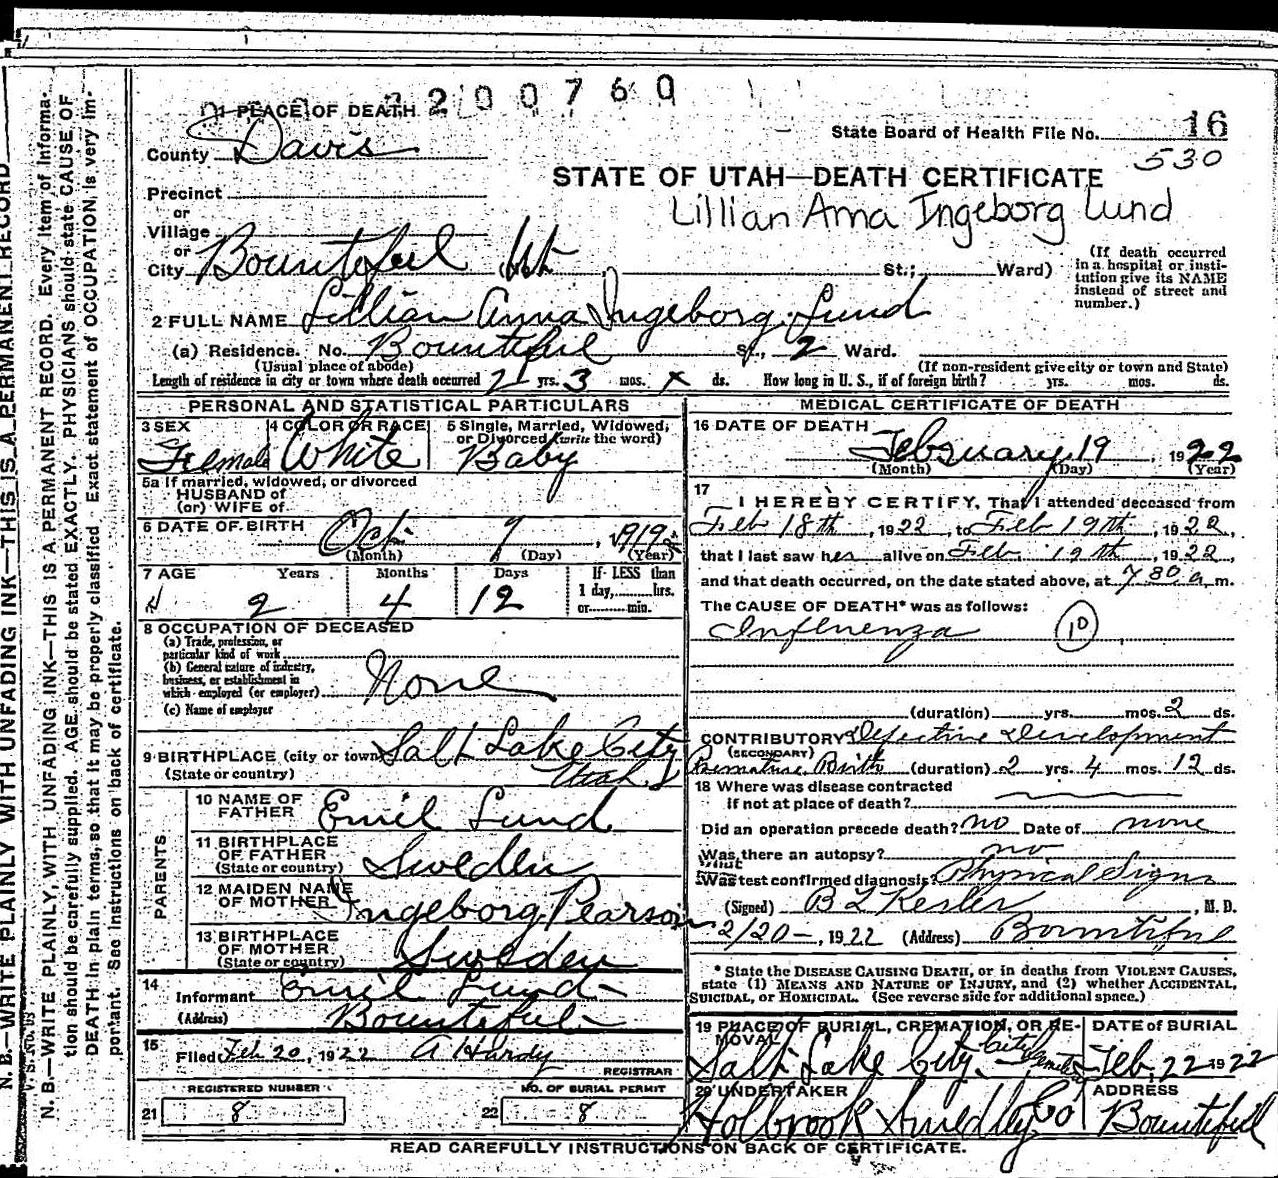 2200760
1 PLACE OF DEATH
State Board of Health File No. 16
530
County Davis
STATE OF UTAH—DEATH CERTIFICATE
Lillian Anna Ingeborg Lund
Precinct
or
Village
or
City Bountiful Ut St.; Ward)
(If death occurred in a hospital or institution give its NAME instead of street and number.)
2 FULL NAME Lillian Anna Ingeborg Lund
(a) Residence. No. Bountiful St., 2 Ward.
(Usual place of abode) (If non-resident give city or town and State)
Length of residence in city or town where death occurred 2 yrs. 3 mos. x ds. How long in U. S., if of foreign birth? yrs. mos. ds.
PERSONAL AND STATISTICAL PARTICULARS
3 SEX Female
4 COLOR OR RACE White
5 Single, Married, Widowed, or Divorced (write the word) Baby
5a If married, widowed, or divorced
HUSBAND of
(or) WIFE of
6 DATE OF BIRTH Oct 7, 1919
(Month) (Day) (Year)
7 AGE Years Months Days If LESS than
1 day, hrs.
or min.
2 4 12
8 OCCUPATION OF DECEASED
(a) Trade, profession, or
particular kind of work
(b) General nature of industry,
business, or establishment in
which employed (or employer) None
(c) Name of employer
9 BIRTHPLACE (city or town) Salt Lake City
(State or country) Utah
PARENTS
10 NAME OF FATHER Emil Lund
11 BIRTHPLACE OF FATHER (State or country) Sweden
12 MAIDEN NAME OF MOTHER Ingeborg Pearson
13 BIRTHPLACE OF MOTHER (State or country) Sweden
14 Informant Emil Lund
(Address) Bountiful
15 Filed Feb 20, 1922 A Hardy
REGISTRAR
REGISTERED NUMBER
21 8
NO. OF BURIAL PERMIT
22 8
MEDICAL CERTIFICATE OF DEATH
16 DATE OF DEATH
February 19 1922
(Month) (Day) (Year)
17
I HEREBY CERTIFY, That I attended deceased from
Feb 18th, 1922, to Feb 19th, 1922,
that I last saw her alive on Feb 19th, 1922,
and that death occurred, on the date stated above, at 7 30 a m.
The CAUSE OF DEATH* was as follows:
Influenza 10
(duration) yrs. mos. 2 ds.
CONTRIBUTORY Defective Development
(SECONDARY)
Premature Birth (duration) 2 yrs. 4 mos. 12 ds.
18 Where was disease contracted
if not at place of death?
Did an operation precede death? no Date of none
Was there an autopsy? no
What test confirmed diagnosis? Physical Signs
(Signed) B L Kesler, M. D.
2/20-, 1922 (Address) Bountiful
* State the DISEASE CAUSING DEATH, or in deaths from VIOLENT CAUSES,
state (1) MEANS AND NATURE OF INJURY, and (2) whether ACCIDENTAL,
SUICIDAL, or HOMICIDAL. (See reverse side for additional space.)
19 PLACE OF BURIAL, CREMATION, OR REMOVAL
Salt Lake City City Cemetery
DATE of BURIAL
Feb. 22 1922
20 UNDERTAKER
Holbrook Smedley Co
ADDRESS
Bountiful
READ CAREFULLY INSTRUCTIONS ON BACK OF CERTIFICATE.
N. B.—WRITE PLAINLY WITH UNFADING INK—THIS IS A PERMANENT RECORD
V. S. No.
N. B.—WRITE PLAINLY, WITH UNFADING INK—THIS IS A PERMANENT RECORD. Every item of informa-
tion should be carefully supplied. AGE should be stated EXACTLY. PHYSICIANS should state CAUSE OF
DEATH in plain terms, so that it may be properly classified. Exact statement of OCCUPATION is very im-
portant. See instructions on back of certificate.